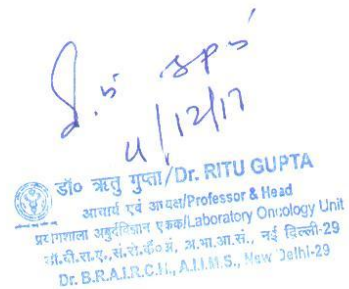 4/12/17
डॉ० ऋतु गुप्ता/Dr. RITU GUPTA
आचार्य एवं अध्यक्ष/Professor & Head
प्रयोगशाला अर्बुदविज्ञान एकक/Laboratory Oncology Unit
नई दिल्ली-29
Dr. B.R.A.I.R.C.H., A.I.I.M.S., New Delhi-29